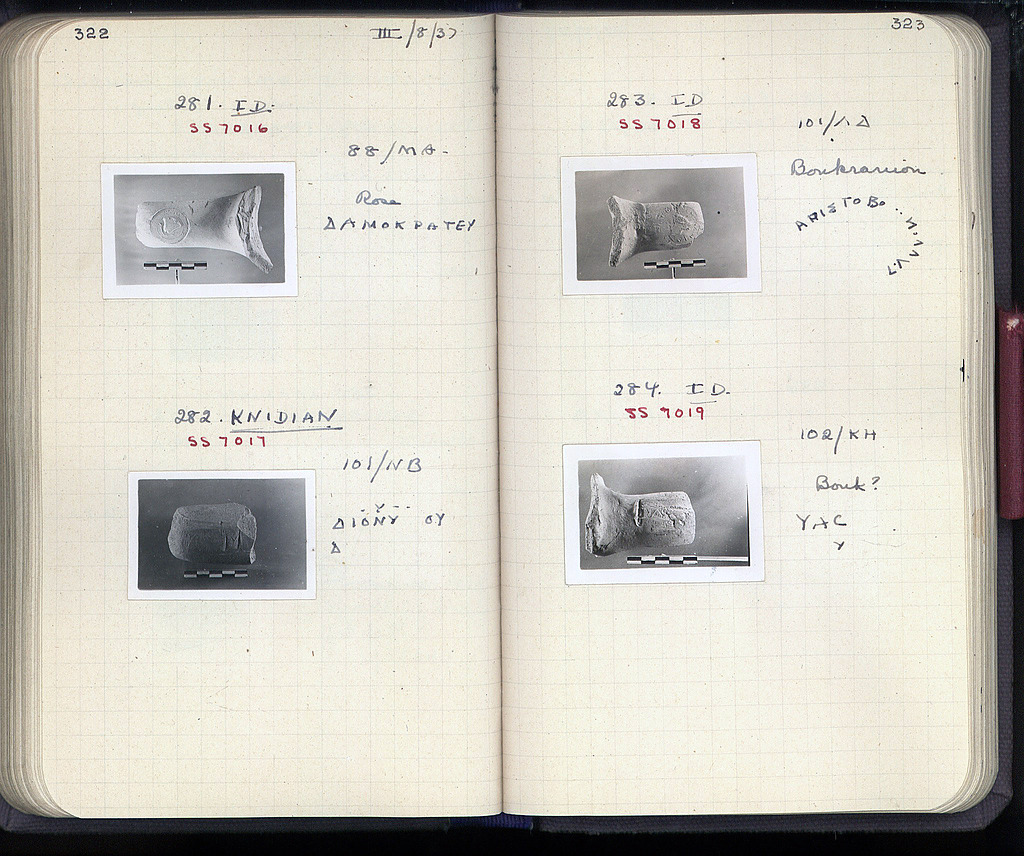 322
III/8/37
281. ID.
SS 7016
88/MA-
Rose
ΔΑΜΟΚΡΑΤΕΥ
282. KNIDIAN
SS 7017
101/NB
ΔΙΟΝΥ ΟΥ
Δ
323
283. ID
SS 7018
101/ΛΔ
Boukranion
ΑΡΙΣΤΟΒΟ
284. ID.
SS 7019
102/KH
Bouk?
YAC
Y